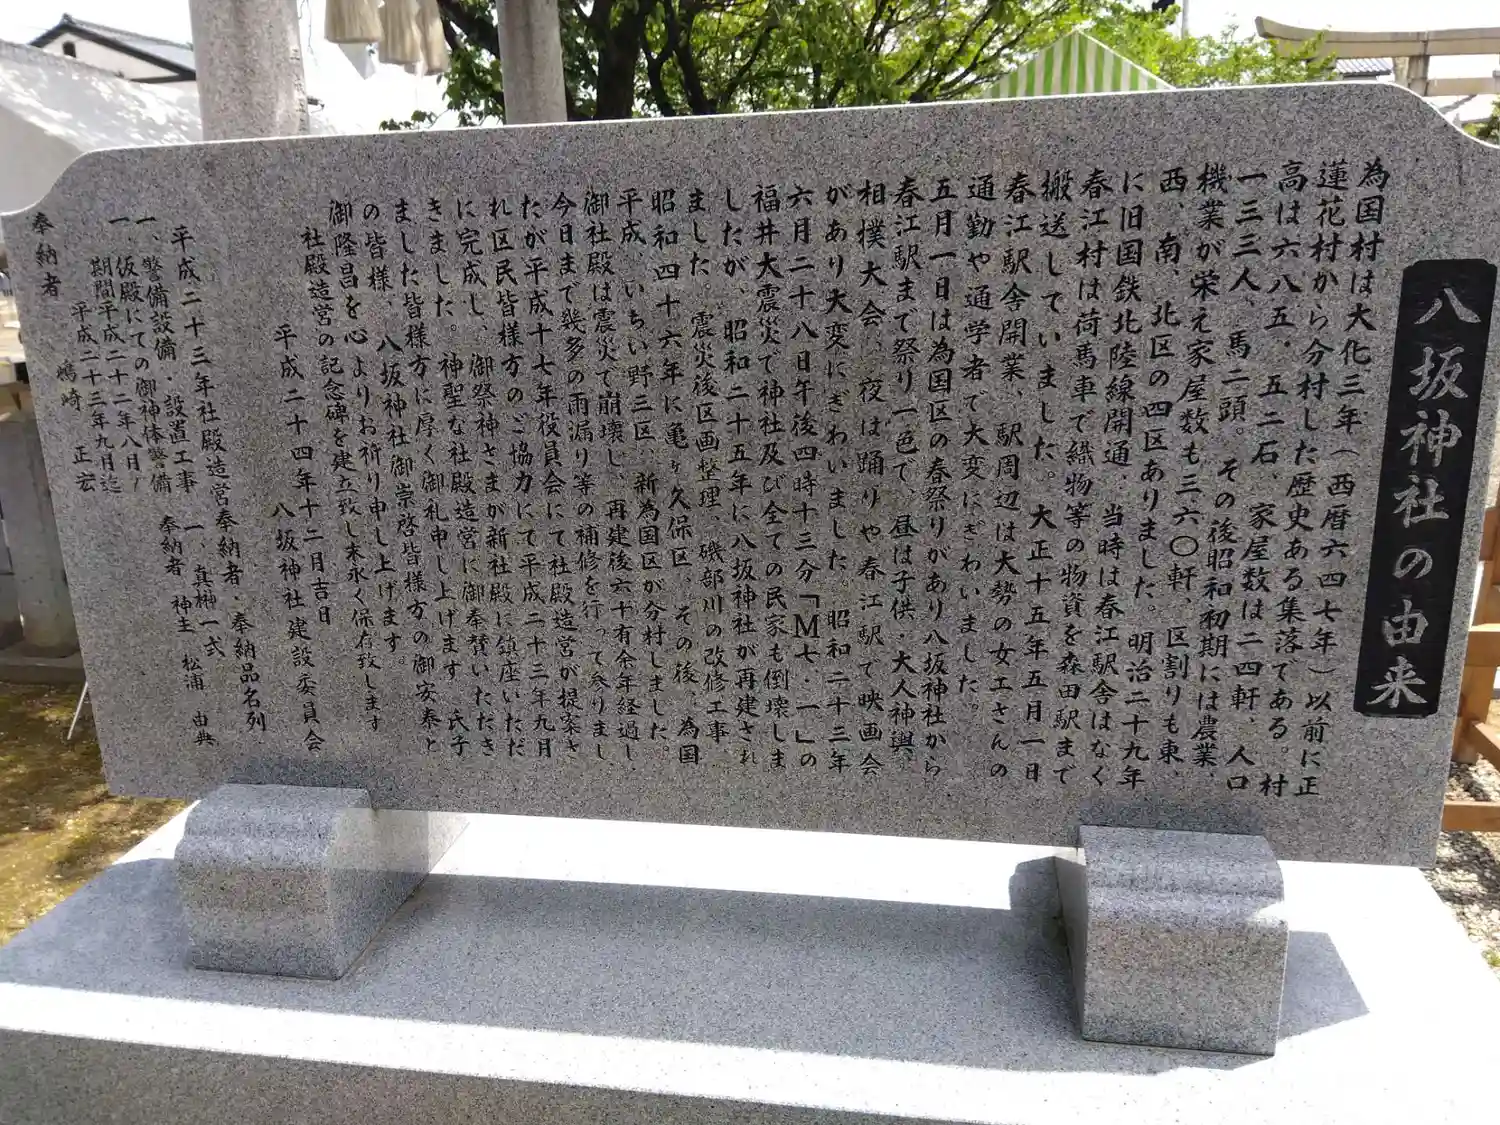 八坂神社の由来
為国村は大化三年（西暦六四七年）以前に正
蓮花村から分村した歴史ある集落である。村
高は六八五．五二石、家屋数は二四軒、人口
一三三人、馬二頭。その後昭和初期には農業、
機業が栄え家屋数も三六〇軒、区割りも東、
西、南、北区の四区ありました。明治二十九年
に旧国鉄北陸線開通、当時は春江駅舎はなく
春江村は荷馬車で織物等の物資を森田駅まで
搬送していました。大正十五年五月一日
春江駅舎開業、駅周辺は大勢の女工さんの
通勤や通学者で大変にぎわいました。
五月一日は為国区の春祭りがあり八坂神社から
春江駅まで祭り一色で、昼は子供・大人神輿、
相撲大会、夜は踊りや春江駅で映画会
があり大変にぎわいました。昭和二十三年
六月二十八日午後四時十三分「Ｍ七・一」の
福井大震災で神社及び全ての民家も倒壊しま
したが、昭和二十五年に八坂神社が再建され
ました。震災後区画整理、磯部川の改修工事
昭和四十六年に亀ヶ久保区、その後、為国
平成、いちい野三区、新為国区が分村しました。
御社殿は震災で崩壊し、再建後六十有余年経過し、
今日まで幾多の雨漏り等の補修を行って参りまし
たが平成十七年役員会にて社殿造営が提案さ
れ区民皆様方のご協力にて平成二十三年九月
に完成し、御祭神さまが新社殿に鎮座いただ
きました。神聖な社殿造営に御奉賛いただき
ました皆様方に厚く御礼申し上げます 氏子
の皆様、八坂神社御崇啓皆様方の御安泰と
御隆昌を心よりお祈り申し上げます。
社殿造営の記念碑を建立致し末永く保存致します
平成二十四年十二月吉日
八坂神社建設委員会
平成二十三年社殿造営奉納者・奉納品名列
一、警備設備・設置工事
一、仮殿にての御神体警備
期間平成二十二年八日ﾉ
平成二十三年九月迄
奉納者 嶋崎 正宏
一、真榊一式
奉納者 神主 松浦 由典